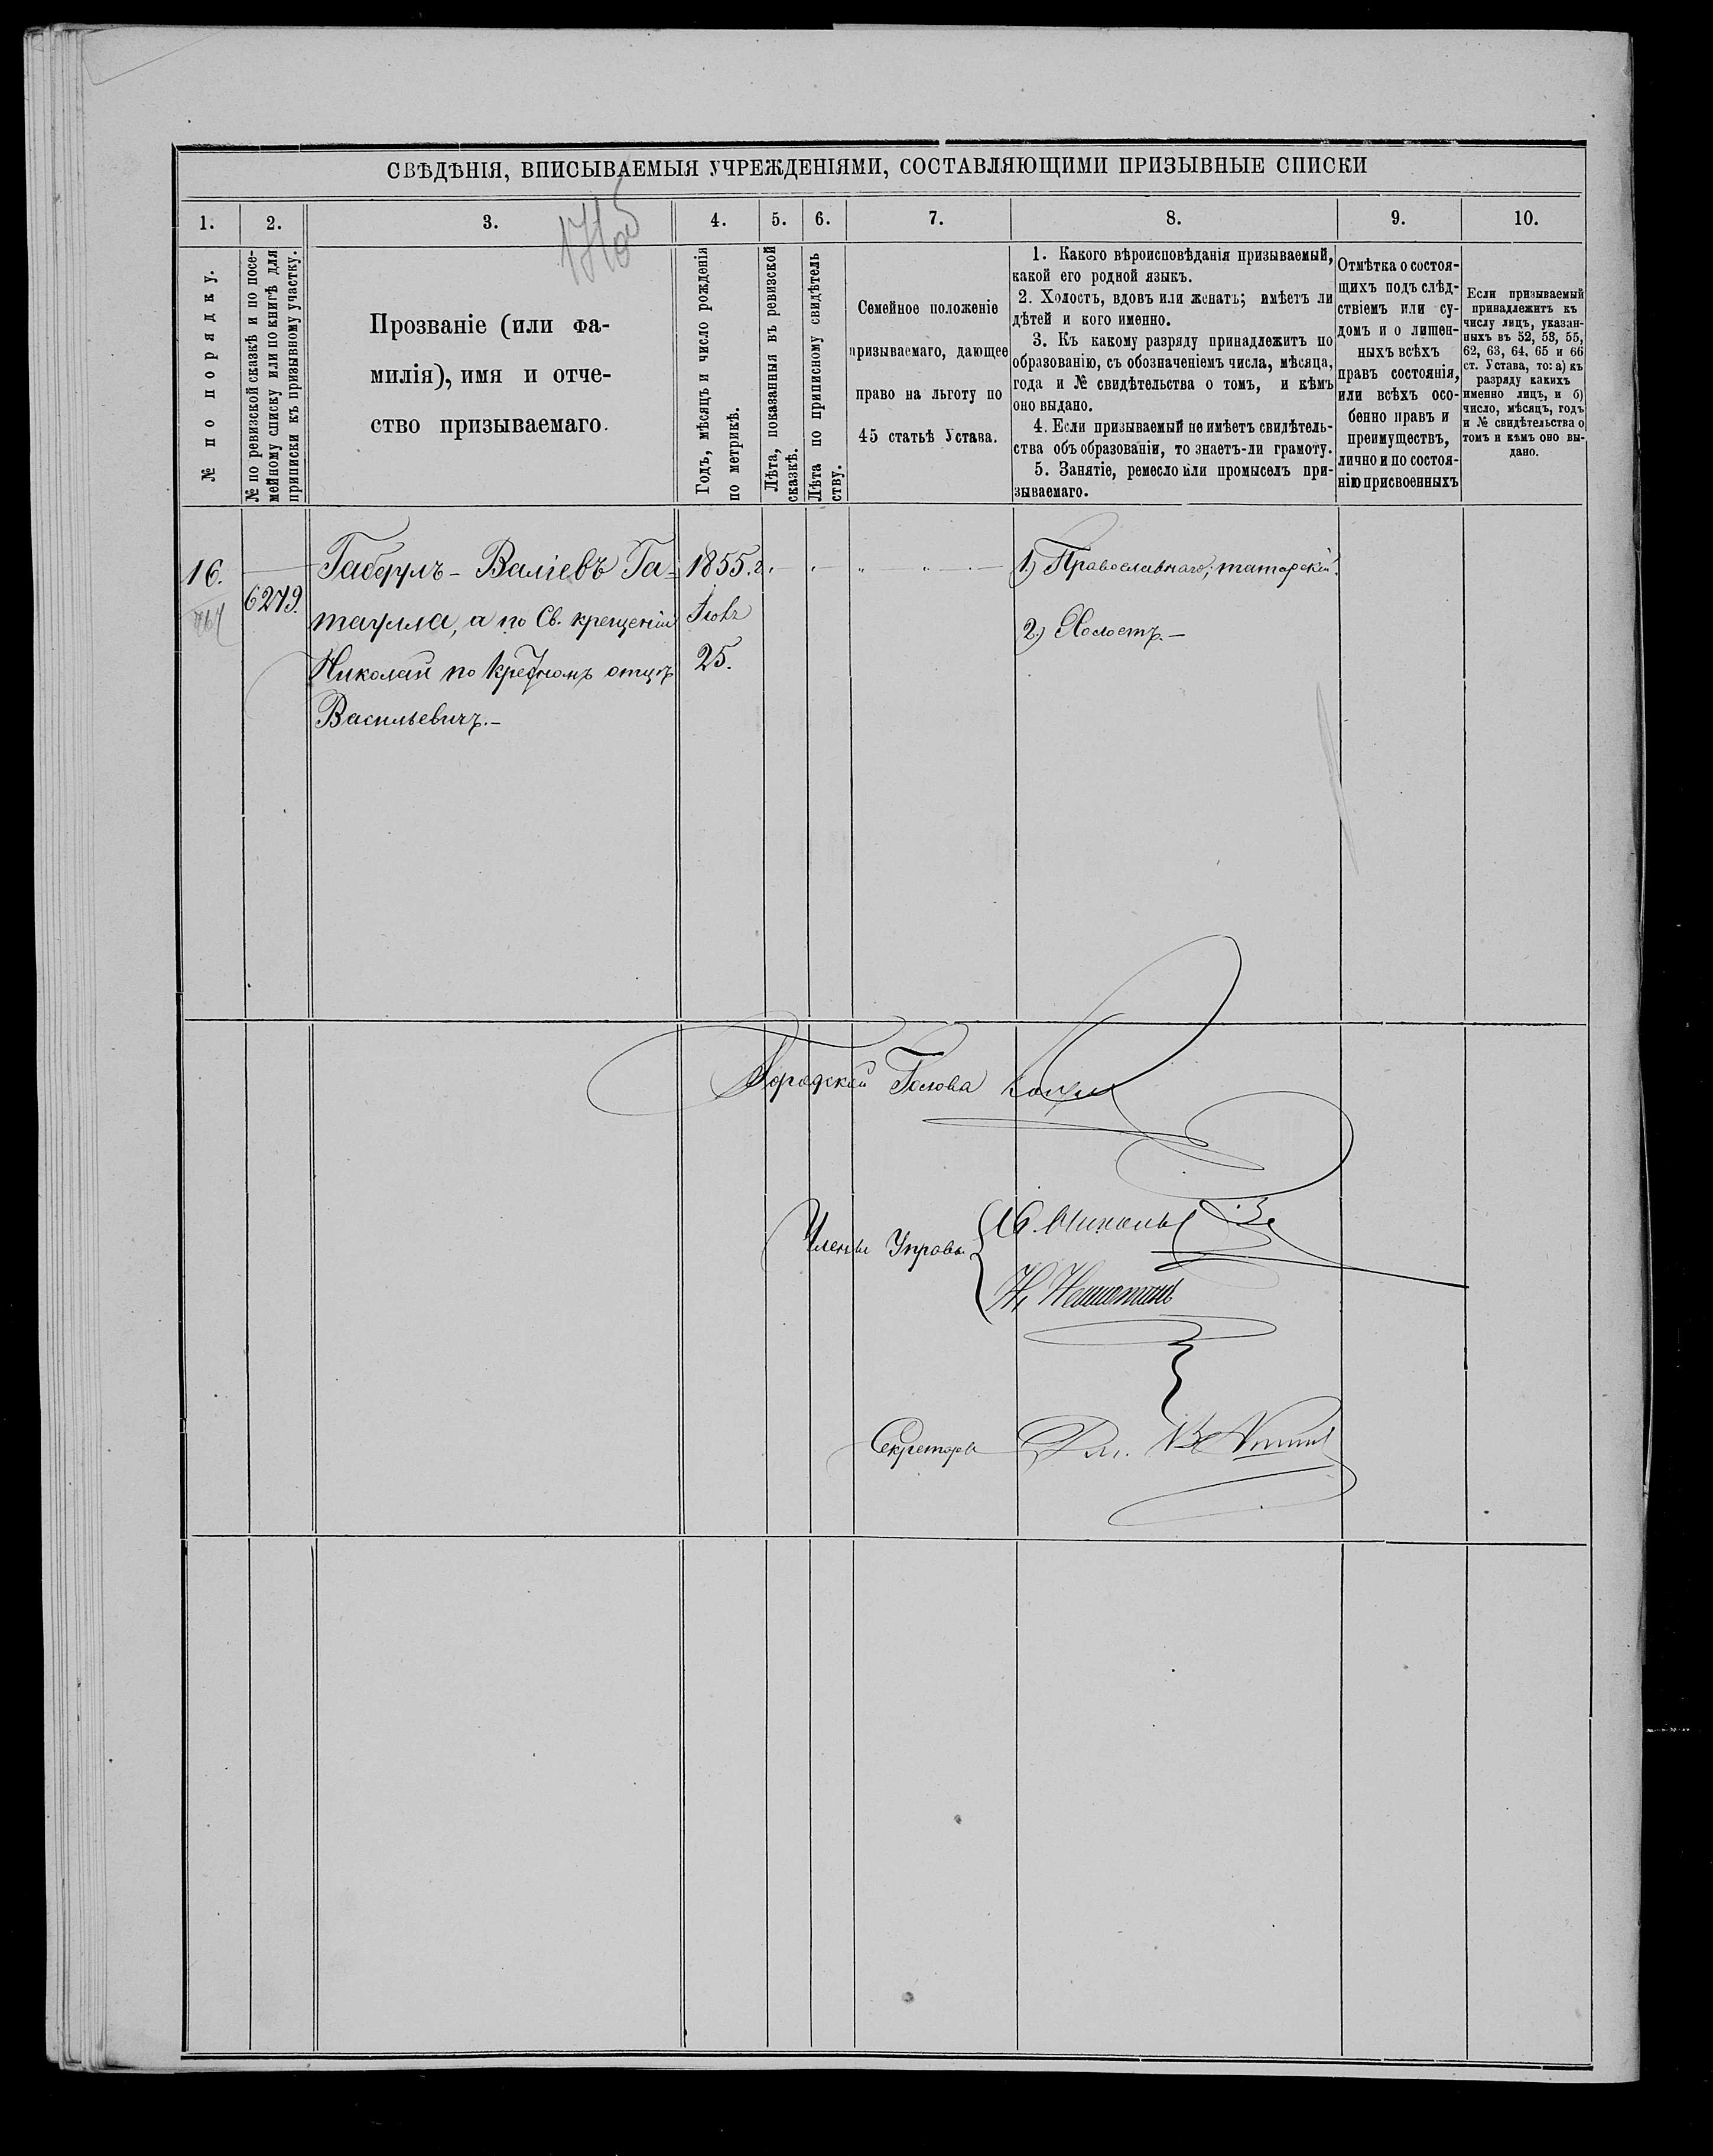 СВѢДѢНІЯ, ВПИСЫВАЕМЫЯ УЧРЕЖДЕНІЯМИ, СОСТАВЛЯЮЩИМИ ПРИЗЫВНЫЕ СПИСКИ
1.
2.
3.
4.
5.
6.
7.
8.
9.
10.
№ по порядку.
№ по ревизской сказкѣ и по посе-
мейному списку или по книгѣ для
приписки къ призывному участку.
Прозваніе (или фа-
милія), имя и отче-
ство призываемаго.
Годъ, мѣсяцъ и число рожденія
по метрикѣ.
Лѣта, показанныя въ ревизской
сказкѣ.
Лѣта по приписному свидѣтель
ству.
Семейное положеніе
призываемаго, дающее
право на льготу по
45 статьѣ Устава.
1. Какого вѣроисповѣданія призываемый,
какой его родной языкъ.
2. Холостъ, вдовъ или женатъ; имѣетъ ли
дѣтей и кого именно.
3. Къ какому разряду принадлежитъ по
образованію, съ обозначеніемъ числа, мѣсяца,
года и № свидѣтельства о томъ, и кѣмъ
оно выдано.
4. Если призываемый не имѣетъ свидѣтель-
ства объ образованіи, то знаетъ-ли грамоту.
5. Занятіе, ремесло или промыселъ при-
зываемаго.
Отмѣтка о состоя-
щихъ подъ слѣд-
ствіемъ или су-
домъ и о лишен-
ныхъ всѣхъ
правъ состоянія,
или всѣхъ осо-
бенно правъ и
преимуществъ,
лично и по состоя-
нію присвоенныхъ
Если призываемый
принадлежитъ къ
числу лицъ, указан-
ныхъ въ 52, 53, 55,
62, 63, 64, 65 и 66
ст. Устава, то: а) къ
разряду какихъ
именно лицъ, и б)
число, мѣсяцъ, годъ
и № свидѣтельства о
томъ и кѣмъ оно вы-
дано.
16.
6279.
Габдулъ-Валіевъ Га-
таулла, а по Св. крещенію
Николай по крестномъ отцѣ
Васильевичъ.-
1855.г.
25.
1.) Православнаго; татарскій.
2.) Холостъ.-
Городской Голова
Члены Управы
Секретарь